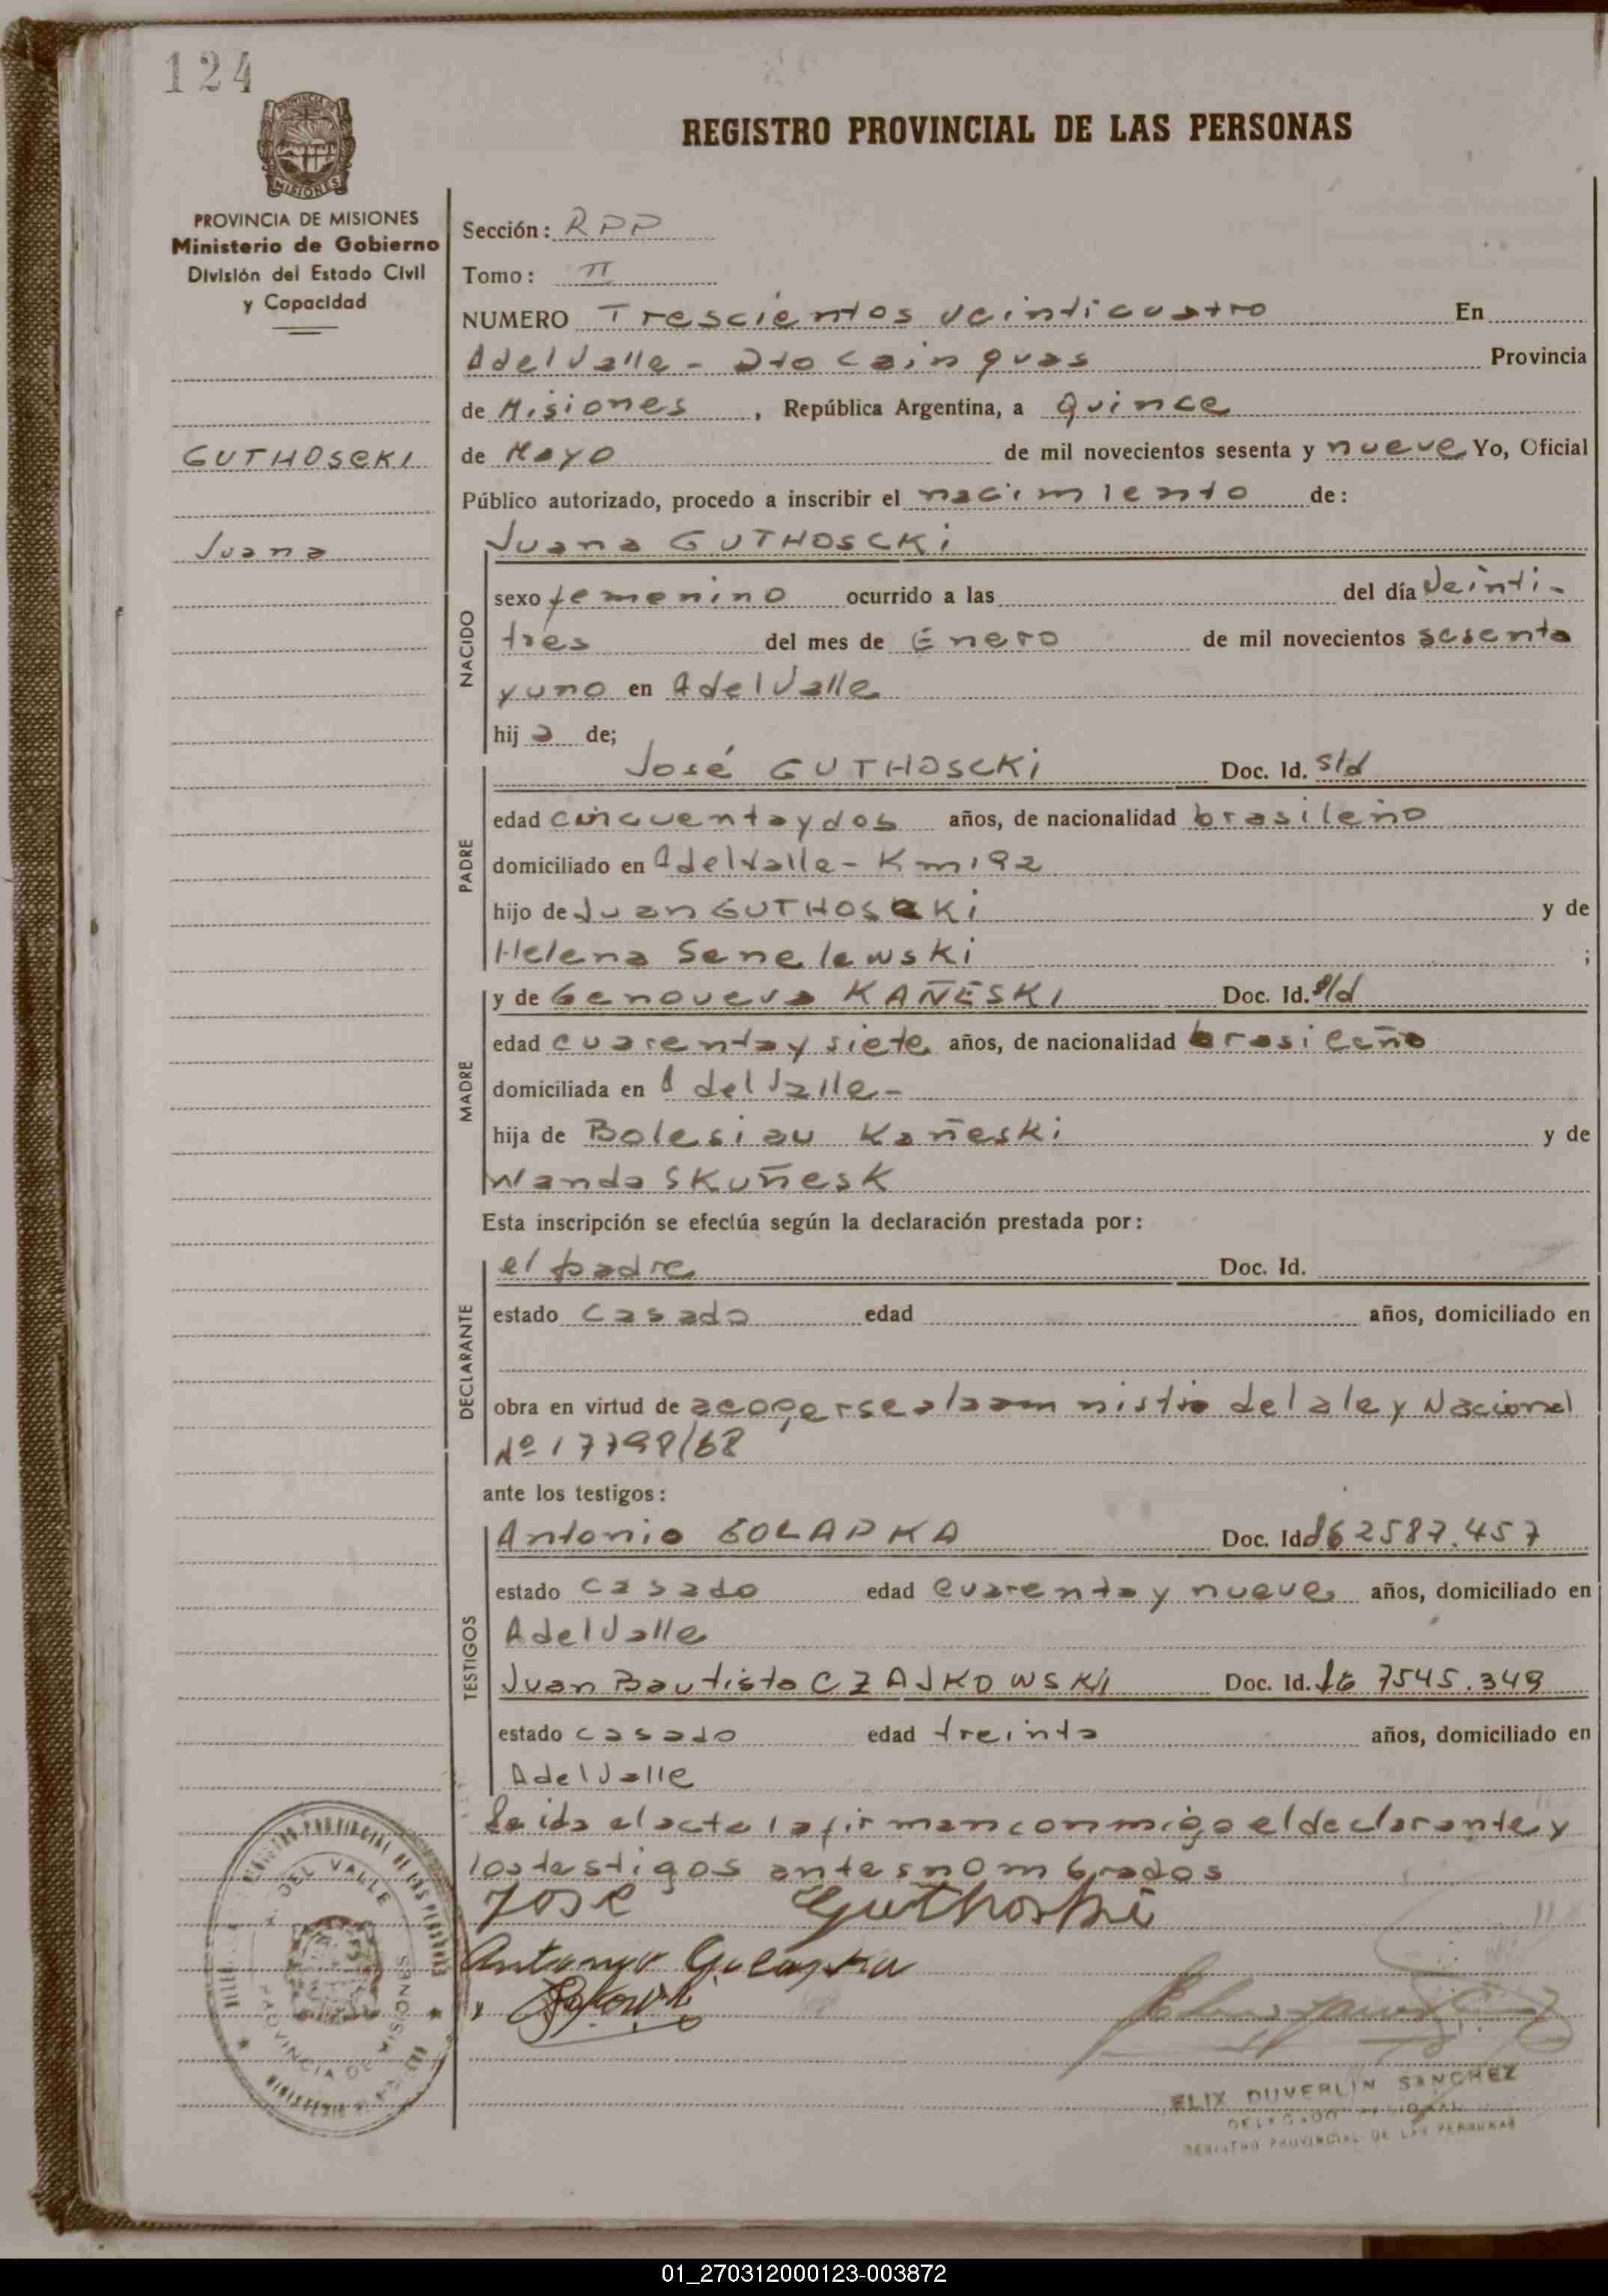 124
REGISTRO PROVINCIAL DE LAS PERSONAS
PROVINCIA DE
MISIONES
PROVINCIA DE MISIONES
Ministerio de Gobierno
División del Estado Civil
y Capacidad
GUTHOSCKI
Juana
Sección: RPP
Tomo: II
NUMERO Trescientos veinticuatro En
A del Valle - Dto Cainguas Provincia
de Misiones, República Argentina, a quince
de Mayo de mil novecientos sesenta y nueve Yo, Oficial
Público autorizado, procedo a inscribir el nacimiento de:
NACIDO
Juana GUTHOSCKi
sexo femenino ocurrido a las del día Veinti-
tres del mes de Enero de mil novecientos sesenta
y uno en A del Valle
hij a de;
PADRE
José GUTHOSCKi Doc. Id. s/d
edad cincuenta y dos años, de nacionalidad brasileño
domiciliado en A del Valle - Km 192
hijo de Juan GUTHOSCKi y de
Helena Senelewski ;
MADRE
y de Genoveva KAÑESKI Doc. Id. s/d
edad cuarenta y siete años, de nacionalidad brasileño
domiciliada en A del Valle -
hija de Bolesiau Kañeski y de
Wanda SKuñesK
Esta inscripción se efectúa según la declaración prestada por:
DECLARANTE
el padre Doc. Id.
estado casado edad años, domiciliado en
obra en virtud de acogerse a la amnistia de la ley Nacional
Nº 17798/68
ante los testigos:
TESTIGOS
Antonio GOLAPKA Doc. Id 2587.457
estado casado edad cuarenta y nueve años, domiciliado en
A del Valle
Juan Bautista CZAJKOWSKI Doc. Id. 7545.349
estado casado edad treinta años, domiciliado en
A del Valle
Leida el acta la firman conmigo el declarante y
los testigos antes nombrados
José Guthoski
Antonio
REGISTRO PROVINCIAL DE LAS PERSONAS
A. DEL VALLE
PROVINCIA DE MISIONES
ELIX DUVERLIN SANCHEZ
DELEGADO
REGISTRO PROVINCIAL DE LAS PERSONAS
01_270312000123-003872